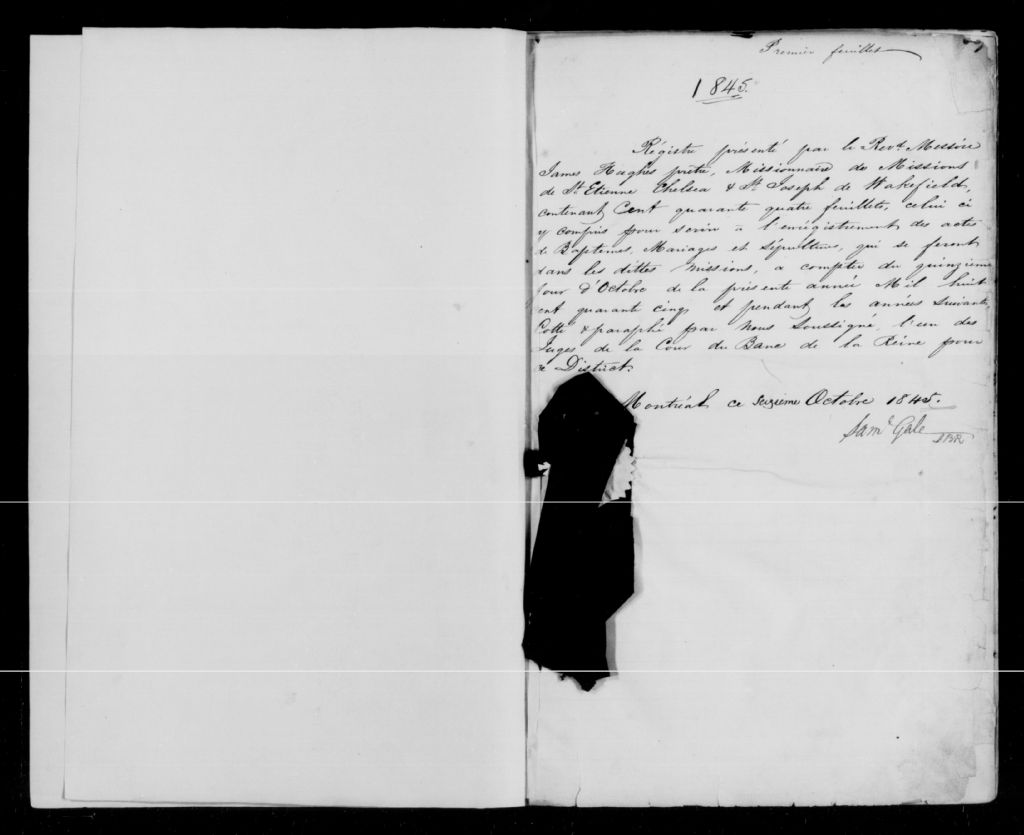 Premier feuillet
1845.
Régistre présenté par le Revd. Messire
James Hughes prêtre, Missionnaire de Missions
de St. Etienne Chelsea & St. Joseph de Wakefield,
contenant Cent quarante quatre feuillets, celui ci
y compris pour servir à l'enrégistrement des actes
de Baptêmes, Mariages et Sépultures, qui se feront
dans les dittes missions, a compter du quinzième
jour d'Octobre de la présente année Mil huit
cent quarante cinq et pendant les années suivantes
Cotté & paraphé par Nous Soussigné, l'un des
Juges de la Cour du Banc de la Reine pour
ce District.
Montréal ce Seizieme Octobre 1845.
Saml Gale JBR